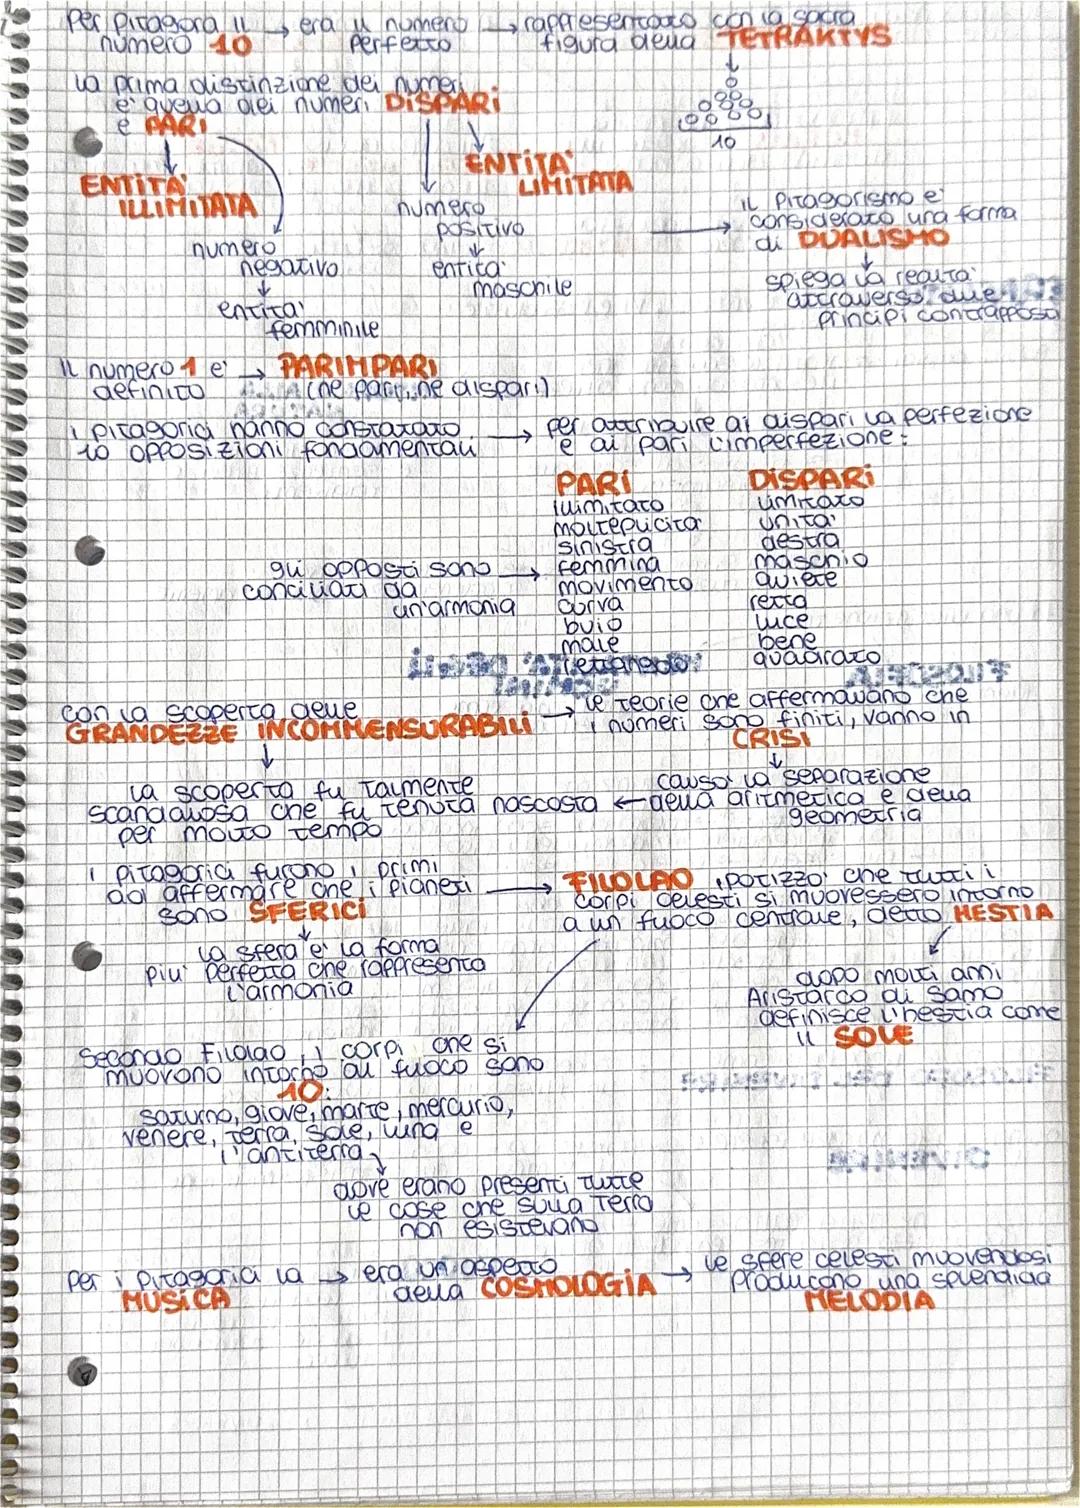 Per Pitagora il → era il numero → rappresentato con la sacra
numero 10 perfetto figura della TETRAKTYS
10
la prima distinzione dei numeri
e' quella dei numeri DISPARI
e PARI
ENTITA' ILLIMITATA
numero negativo
entita' femminile
ENTITA' LIMITATA
numero positivo
entita' maschile
il Pitagorismo e'
considerato una forma
di DUALISMO
spiega la realta'
attraverso due
principi contrapposti
il numero 1 e' → PARIMPARI
definito (ne pari, ne dispari)
i pitagorici hanno constatato → per attribuire ai dispari la perfezione
10 opposizioni fondamentali e ai pari l'imperfezione:
PARI DISPARI
illimitato limitato
molteplicita' unita'
sinistra destra
femmina maschio
movimento quiete
curva retta
buio luce
male bene
rettangolo quadrato
gli opposti sono →
conciliati da
un'armonia
con la scoperta delle → le teorie che affermavano che
GRANDEZZE INCOMMENSURABILI i numeri sono finiti, vanno in
CRISI
la scoperta fu talmente causo' la separazione
scandalosa che fu tenuta nascosta ← della aritmetica e della
per molto tempo geometria
i pitagorici furono i primi
ad affermare che i pianeti →
sono SFERICI
la sfera e' la forma
piu' perfetta che rappresenta
l'armonia
FILOLAO ipotizzo' che tutti i
corpi celesti si muovessero intorno
a un fuoco centrale, detto HESTIA
dopo molti anni
Aristarco di Samo
definisce l'hestia come
il SOLE
Secondo Filolao, i corpi che si
muovono intorno al fuoco sono
10:
saturno, giove, marte, mercurio,
venere, terra, sole, luna e
l'antiterra
dove erano presenti tutte
le cose che sulla Terra
non esistevano
Per i pitagorici la → era un aspetto → le sfere celesti muovendosi
MUSICA della COSMOLOGIA producono una splendida
MELODIA